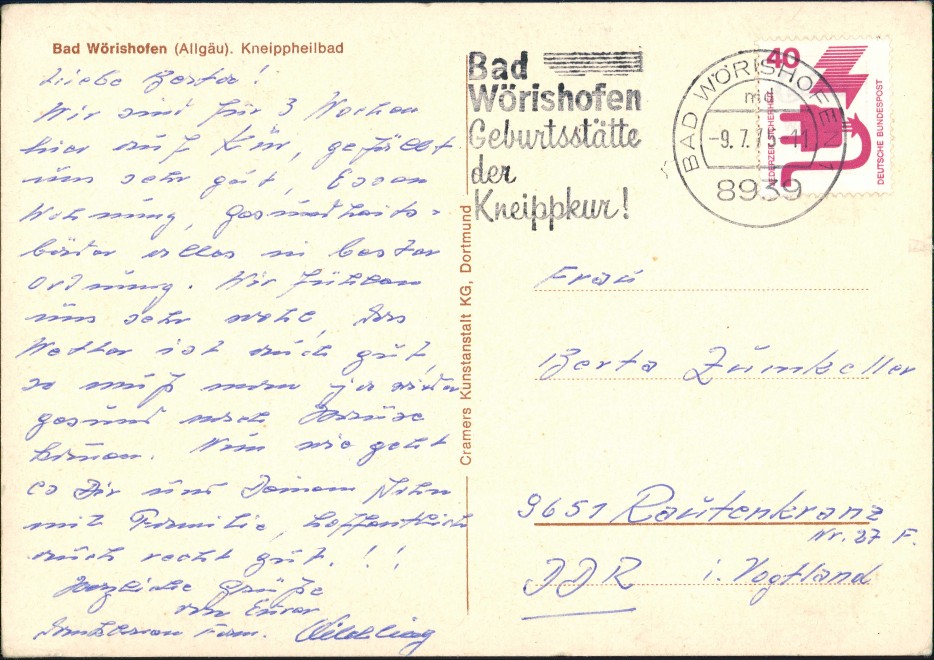 Bad Wörishofen (Allgäu). Kneippheilbad
Liebe Berta!
Wir sind für 3 Wochen
hier auf Kur, gefällt
uns sehr gut, Essen
Wohnung, Gesundheits-
bäder alles in bester
Ordnung. Wir fühlen
uns sehr wohl, das
Wetter ist auch gut,
so muß man ja wieder
gesund nach Hause
können. Nun wie geht
es Dir und Deinem Sohn
mit Familie, hoffentlich
auch recht gut.!!
Herzliche Grüße
von Eurer
dankbaren Fam.
Cramers Kunstanstalt KG, Dortmund
Bad
Wörishofen
Geburtsstätte
der
Kneippkur!
BAD WÖRISHOFEN 1
-9.7.
8939
40
JEDERZEIT SICHERHEIT
DEUTSCHE BUNDESPOST
Frau
Berta Zumkeller
9651 Rautenkranz
Nr. 27 F.
DDR i. Vogtland